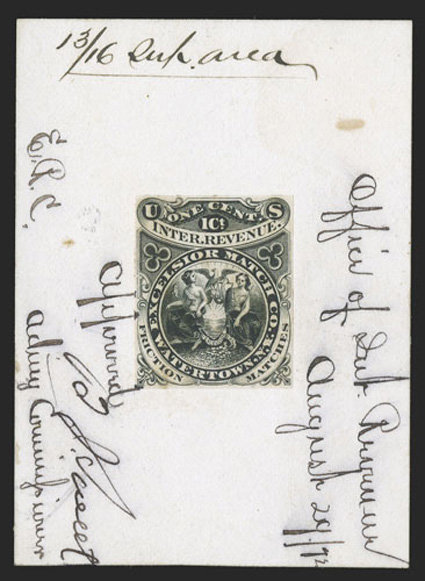 13/16 Sup. area
U ONE CENT. S
1Ct
INTER. REVENUE.
EXCELSIOR MATCH CO.
WATERTOWN. N.Y.
FRICTION MATCHES
Office of Int. Revenue
August 29/72
E.A.C.
Approved
Acting Commissioner